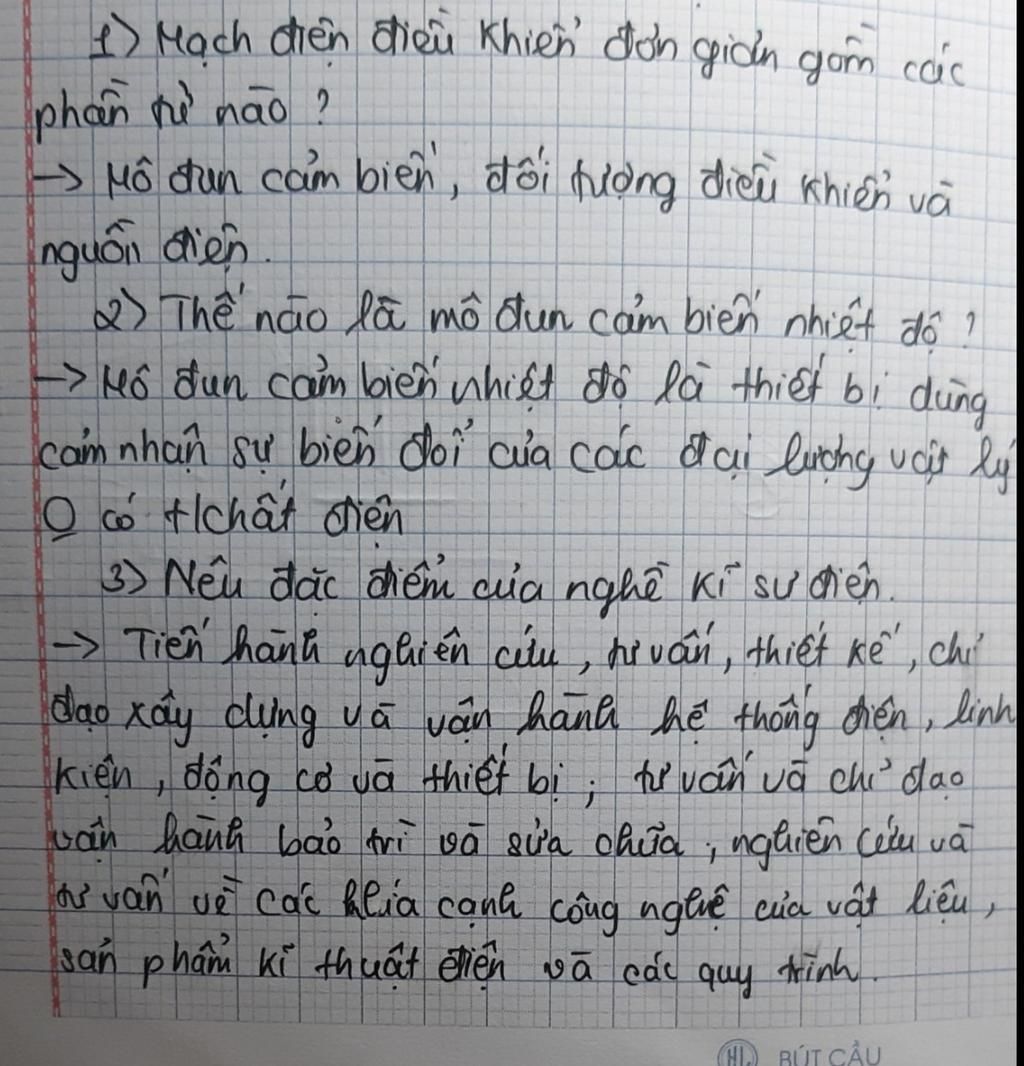 1) Mạch điện điều khiển đơn giản gồm các
phần tử nào?
→ Mô đun cảm biến, đối tượng điều khiển và
nguồn điện.
2) Thế nào là mô đun cảm biến nhiệt độ?
→ Mô đun cảm biến nhiệt độ là thiết bị dùng
cảm nhận sự biến đổi của các đại lượng vật lý
O có t/chất điện
3) Nêu đặc điểm của nghề kĩ sư điện.
→ Tiến hành nghiên cứu, tư vấn, thiết kế, chỉ
đạo xây dựng và vận hành hệ thống điện, linh
kiện, động cơ và thiết bị; tư vấn và chỉ đạo
vận hành bảo trì và sửa chữa, nghiên cứu và
tư vấn về các khía cạnh công nghệ của vật liệu,
sản phẩm kĩ thuật điện và các quy trình.
HL BÚT CẦU